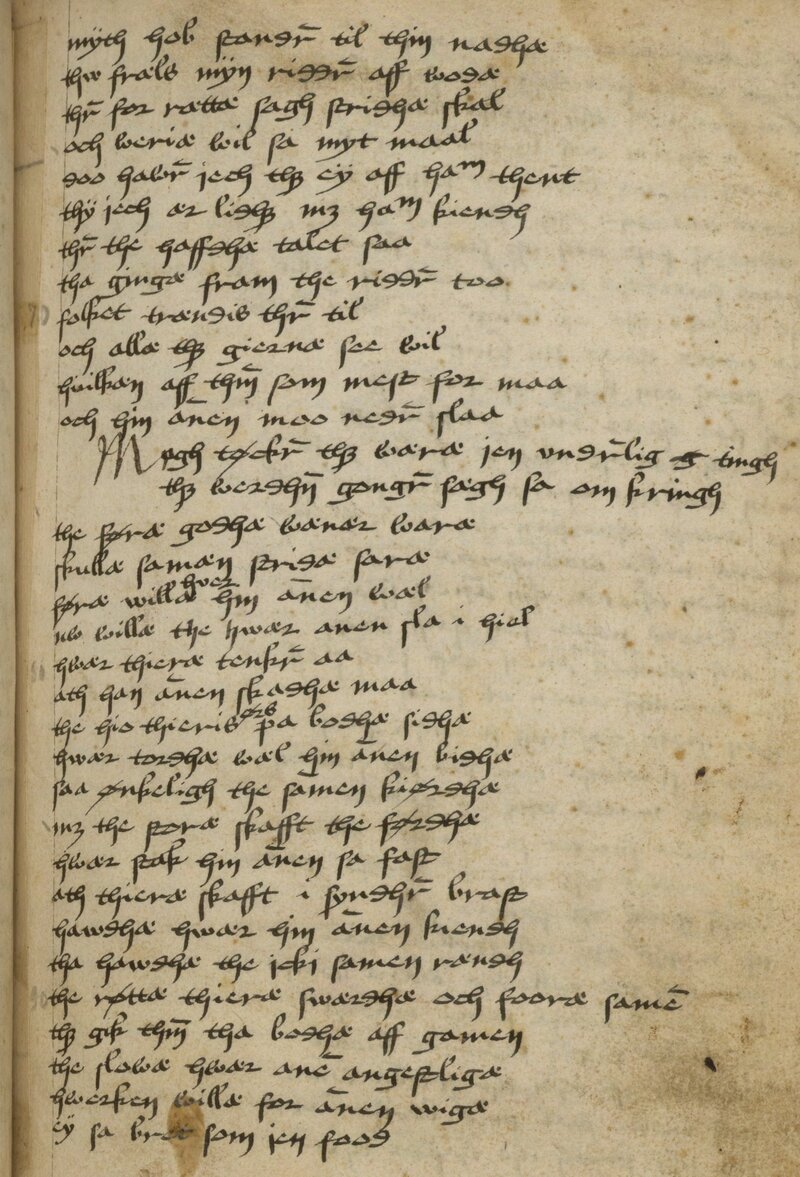 myth hob standr̄ til thin nadhæ
thw fræls myn riddr̄ aff wodæ
thr̄ for rættæ sagh stridhæ skal
och weriæ wil sa myt maal
doo hawr̄ jech thꝫ ey aff haᵐ thent
thy jech ær lidhꝫ mꝫ haᵐ kiendh
thr̄ the haffdhæ talet saa
tha gingæ fram the riddr̄ too
folket trændis thr̄ til
och allæ thꝫ giernæ see wil
hwilkæn aff thm̄ som mest for maa
och hin ānen moo nedr̄ slaa
Megh tøckr̄ thꝫ wæræ jen vndr̄lig tingh
thꝫ werdhn̄ gongr̄ sægh sa om kringh
the støræ godhæ wænær waræ
skullæ samæn stridæ saræ
føræ willæ hwer hin ānen wæl
nw willæ the hwær anen sla i hiel
hwær thieræ tenkr̄ aa
ath han ānen skadhæ maa
the hio thieris ørs pa bodhæ sidhæ
hwær tordhæ wæl hin ānen bidhæ
saa ønkeligh the samen kiørdhæ
mꝫ the storæ skafft the førdhæ
hwær stak hin ānen sa fast
ath thieræ skafft i syndhr̄ brast
hawdhæ hwær hin ānen kiendh
tha hawdhæ the icki samen rændh
the røttæ thieræ swærdhæ och fooræ samē
thꝫ gik thm̄ tha bodhæ aff gamen
the slowæ hwær anē angestligæ
hwerken willæ for ānen wigæ
ey sa bret som jen food